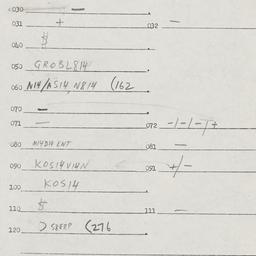 030 —
031 + 032 —
040 $
050 GROBL814
060 N14/AS14, N814 (162
070 —
071 — 072 -/-/-/+
080 M14D14 ENT 081 —
090 KOS14V14N 091 +/-
100 KOS14
110 $ 111 —
120 (276